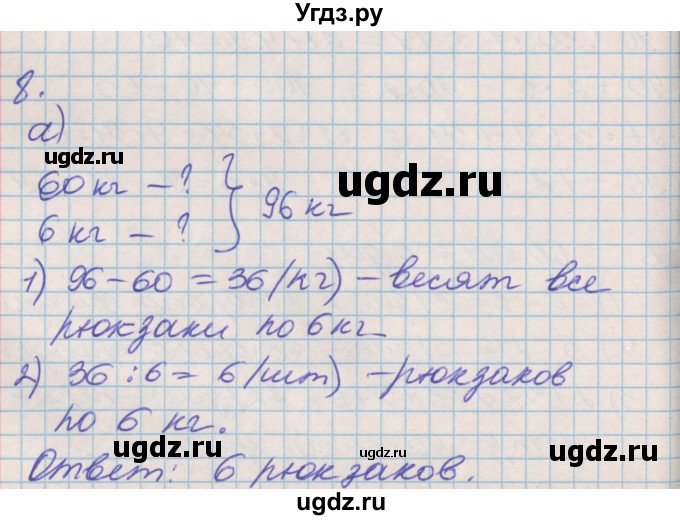 Угдз.ру
8.
а)
ugdz.ru
60 кг – ?
6 кг – ? } 96 кг
ugdz.ru
ugdz.ru
1) 96 – 60 = 36 (кг) – весят все
рюкзаки по 6 кг
ugdz.ru
ugdz.ru
2) 36 : 6 = 6 (шт) – рюкзаков
по 6 кг.
ugdz.ru
ugdz.ru
ugdz.ru
Ответ: 6 рюкзаков.
ugdz.ru